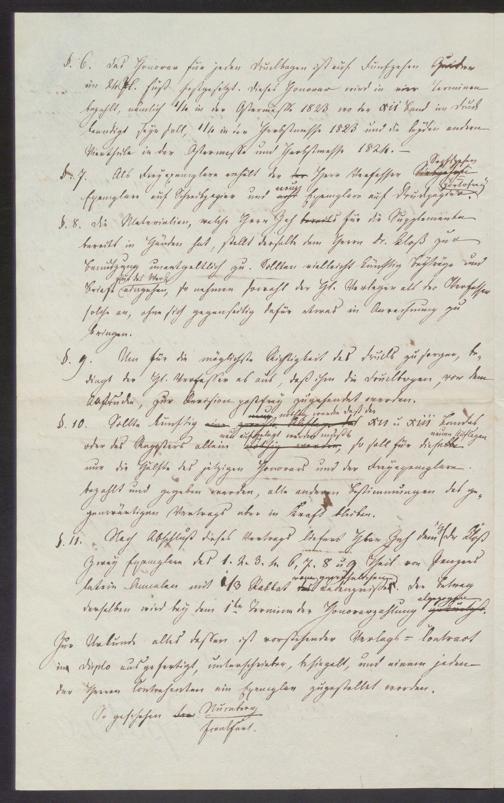 §. 6. Das Honorar für jeden Druckbogen ist auf Funfzehen Gulden
im 24 Fl. Fuß festgesetzt. Dieses Honorar wird in vier Terminen
bezahlt, nemlich 1/4 in der Ostermesse 1823 wo der XII Band im Druck
beendigt seyn soll, 1/4 in der Herbstmesse 1823 und die beyden andern
Viertheile in der Ostermesse und Herbstmesse 1824. —
§. 7. Als Freyexemplare erhält der Herr Verfasser Sechszehen
Exemplare auf Schreibpapier und neun Exemplare auf Druckpapier
§. 8. Die Materialien, welche Herr Zeh bereits für die Supplemente
bereits in Händen hat, stellt derselbe dem Herrn Dr. Kloß zur
Benutzung unentgeltlich zu. Sollten vielleicht künftig Beyträge und
Briefe für das Werk eingehen, so nehmen sowohl der Hr. Verleger als der Verfasser
solche an, ohne sich gegenseitig dafür etwas in Anrechnung zu
bringen.
§. 9. Um für die möglichste Richtigkeit des Drucks zu sorgen, be-
dingt der Hr. Verfasser es aus, daß ihm die Druckbogen, vor dem
Abdrucke, zur Revision postfrey zugesendet werden.
§. 10. Sollte künftig XII u XIII Bandes
oder des Registers allein neu aufgelegt werden müssen, so soll für dieselbe
nur die Hälfte des jetzigen Honorars und der Freyexemplare
bezahlt und gegeben werden, alle anderen Bestimmungen des ge-
genwärtigen Vertrags aber in Kraft bleiben.
§. 11. Nach Abschluß dieses Vertrags liefert Herr Zeh dem Hr. Dr Kloß
Zwey Exemplare des 1. 2. 3. 4. 6, 7. 8 u 9 Theil von Panzers
latein Annalen mit 1/3 Rabatt Ladenpreises. Der Betrag
derselben wird bey dem 1ten Termin der Honorarzahlung abgezogen
Zur Urkunde alles dessen ist vorstehender Verlags-Contract
in Duplo ausgefertigt, unterschrieben, besiegelt, und einem jeden
der Herren Contrahenten ein Exemplar zugestellt worden.
So geschehen Nürnberg
Frankfurt.